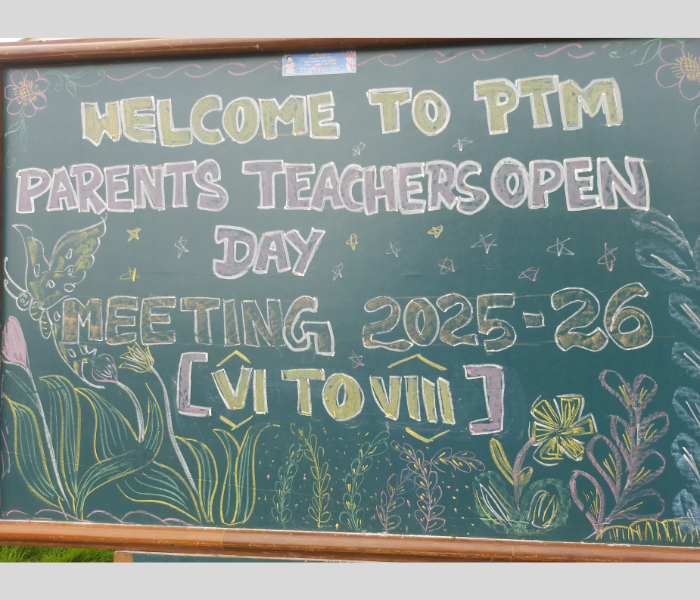 WELCOME TO PTM
PARENTS TEACHERS OPEN
DAY
MEETING 2025-26
[VI TO VIII]